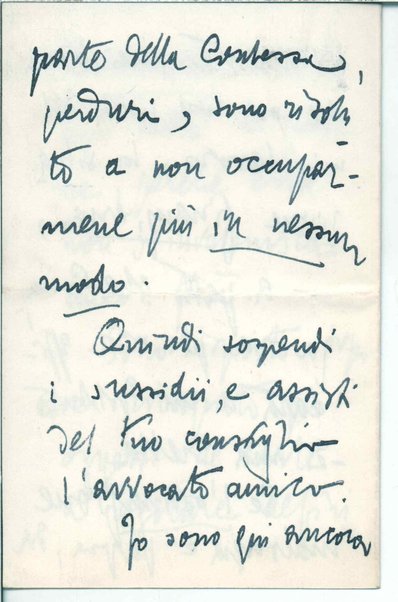 parte della Contessa,
perduri, sono risolu
to a non occupar-
mene più in nessun
modo.
Quindi sospendi
i sussidii, e assisti
del tuo consiglio
l'avvocato amico.
Io sono qui ancora